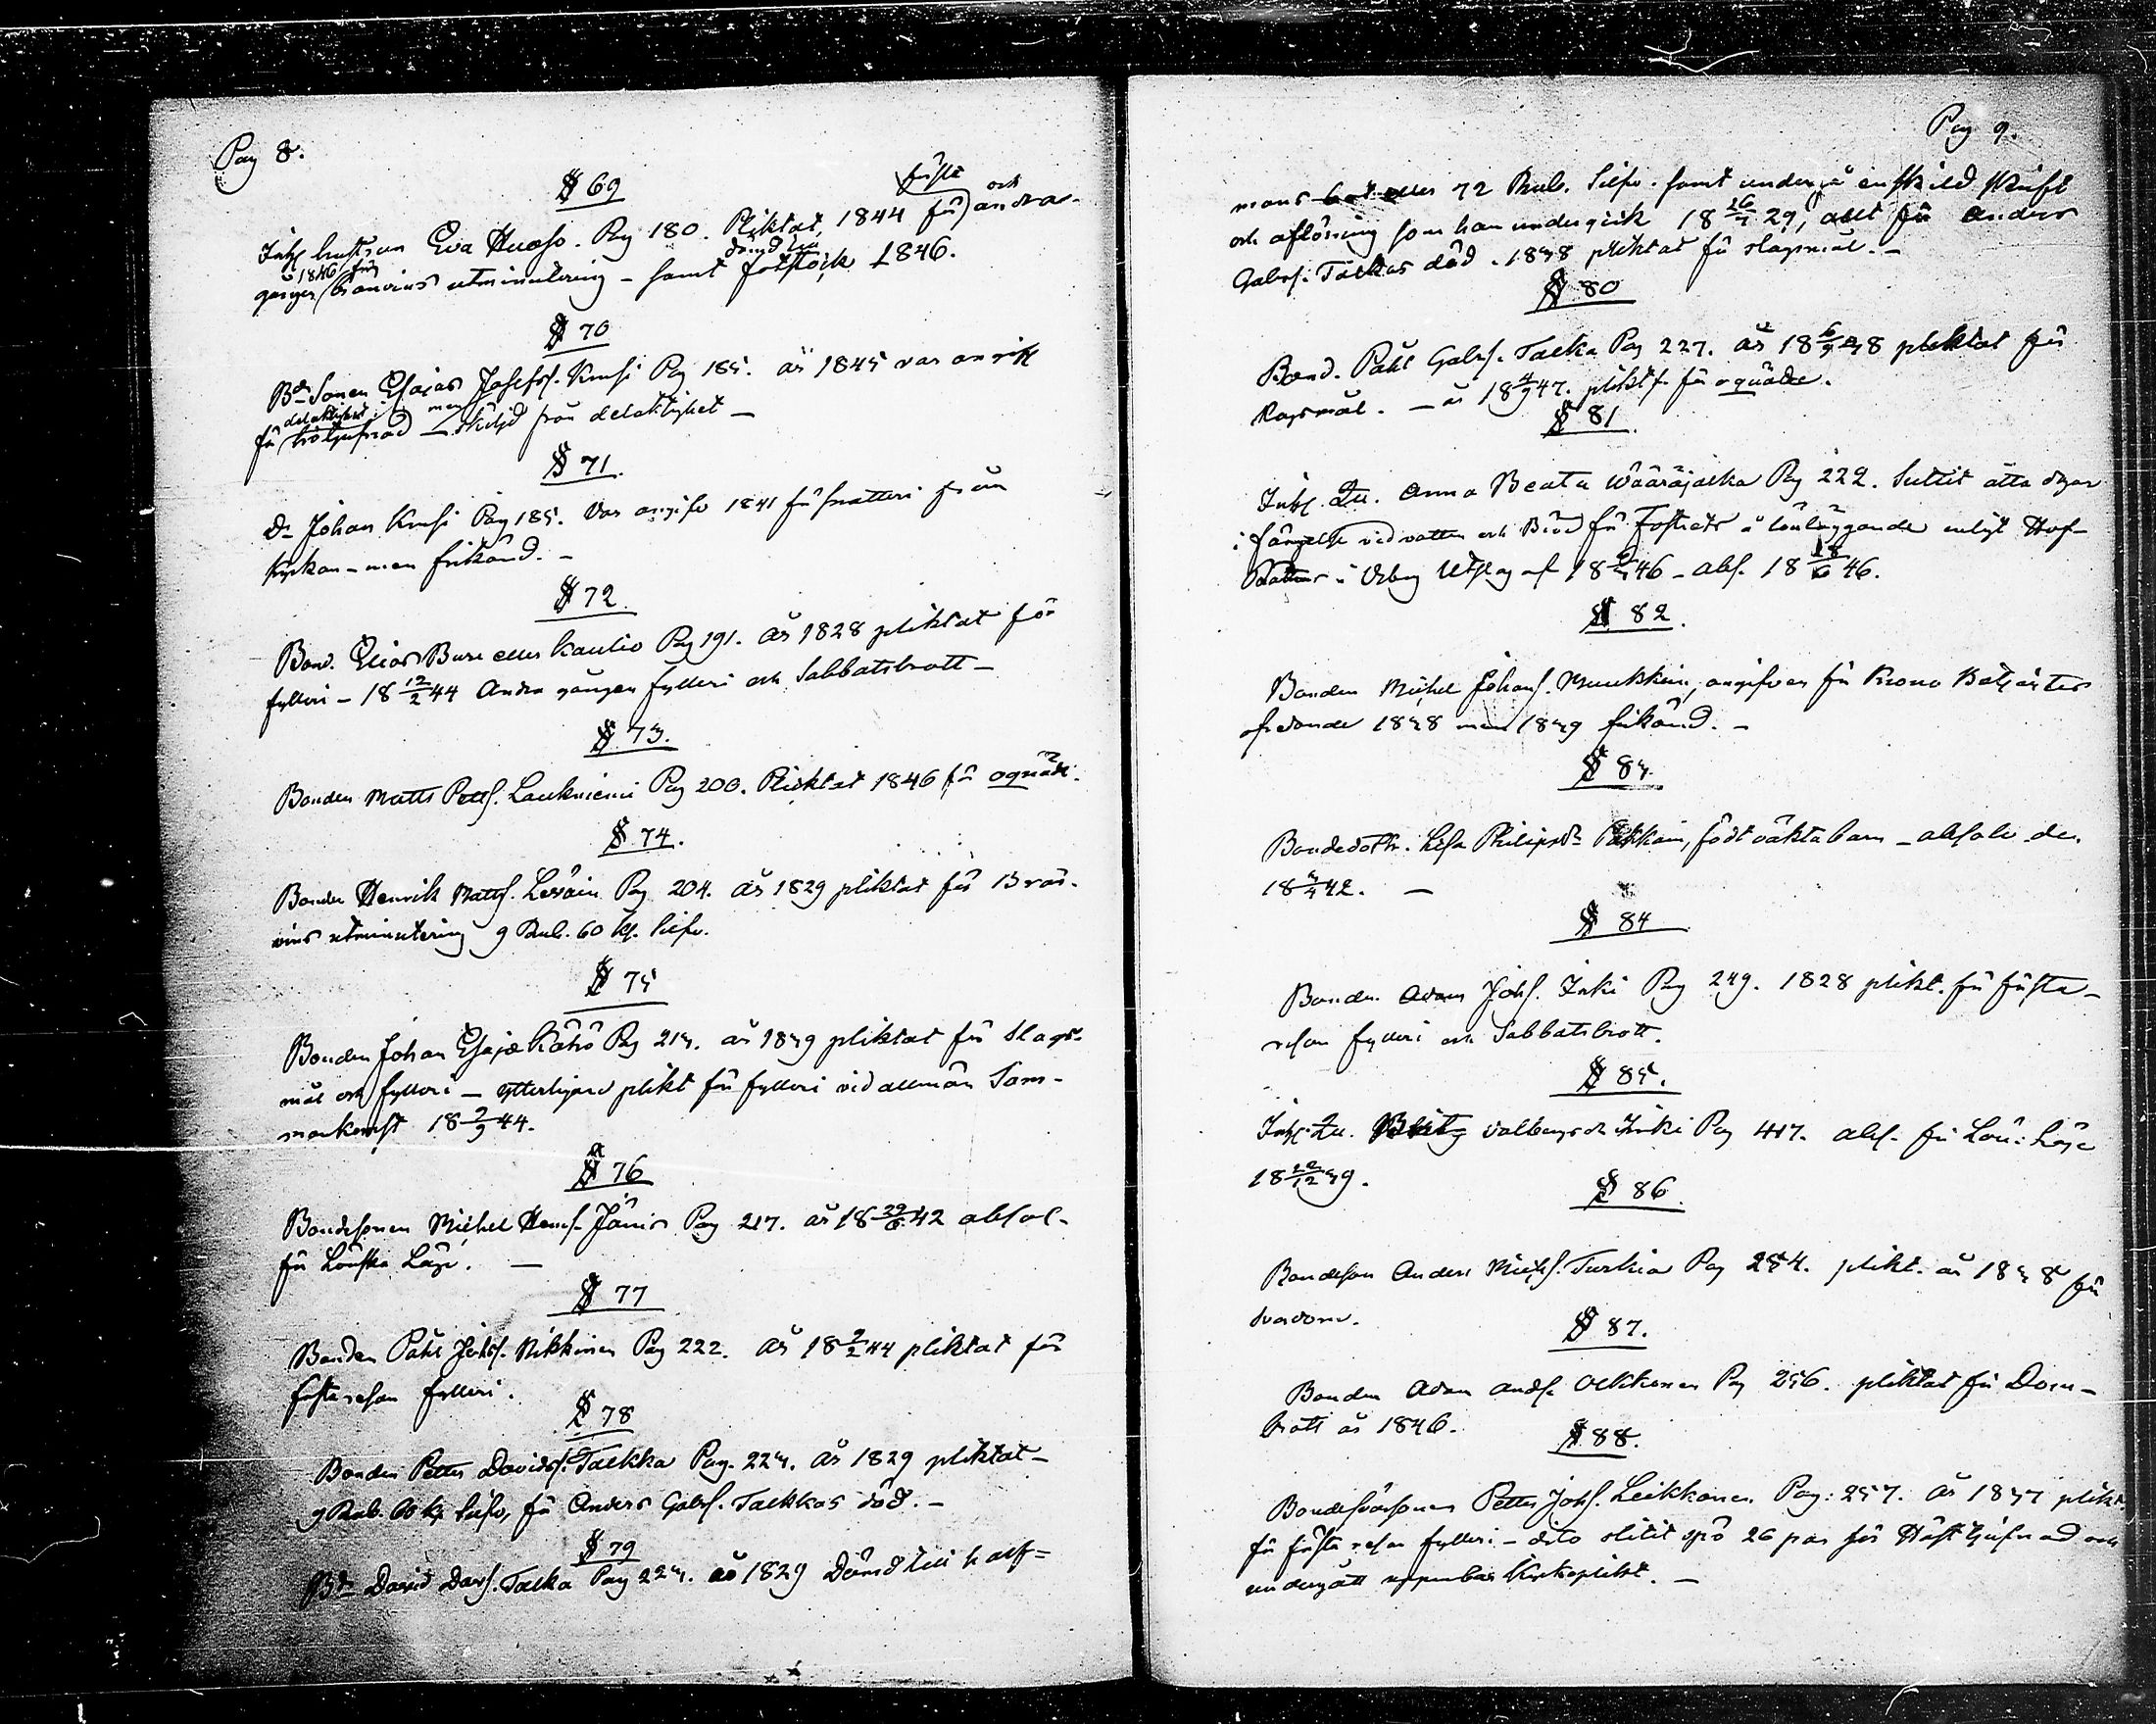 Pag 8.
§ 69
första
Inhs hustrun Eva Huoso. Pag 180. Pliktat, 1844 för och andra
1846 för dömd till
gånger bränvins utminutering - samt fotstock 1846.
§ 70
Bd Sonen Esajas Josefss. Knusi Pag 185. år 1845 var angift
delaktighet i men
för tröljufnad - skiljd från delaktighet -
§ 71.
Do Johan Knusi Pag 185. Var angifv 1841 för snatteri från
kyrkan - men frikänd. -
§ 72.
Bond. Elias Bure eller Kaulio Pag 191. år 1828 pliktat för
fylleri - 18 12/2 44 Andra gången fylleri och Sabbatsbrott -
§ 73.
Bonden Matts Petts. Laukniemi Pag 200. Pliktat 1846 för oqväde.
§ 74.
Bonden Henrik Matts. Leväin Pag 204. år 1829 pliktat för Brän-
vins utminutering 9 Rub. 60 kp. Silfv.
§ 75
Bonden Johan Esajæ Kähö Pag 213. år 1839 pliktat för Slags-
mål och fylleri - ytterligare plikt för fylleri vid allmän Sam-
mankomst 18 2/9 44.
§ 76
Bondesonen Michel Hens. Jänis Pag 217. år 18 29/6 42 absol-
för Lönska Läge. -
§ 77
Bonden Påhl Johs. Mikkinen Pag 222. år 18 2/2 44 pliktat för
första resan fylleri.
§ 78
Bonden Petter Davids. Talkka Pag. 223. år 1829 pliktat -
9 Rub. 60 kp Silfv, för Anders Gabrs. Talkkas död. -
§ 79
Bd David Davs. Talka Pag 223. år 1829 Dömd till half=
Pag 9.
mans bot eller 72 Rub. Silfv. samt undergå enskild skrift
och aflösning som han undergick 18 26/7 29, allt för Anders
Gabrs. Talkas död. 1838 pliktat för slagsmål. -
§ 80
Bond. Påhl Gabrs. Talka Pag 227. år 18 6/9 38 pliktat för
slagsmål. - år 18 4/9 47. plikt för oqväde.
§ 81.
Inhs. Qu. Anna Beata Wääräjalka Pag 222. Suttit åtta dygn
i fängelse vid vatten och Bröd för Fostrets å lönläggande enligt Hof-
Rättens i Wiborg Utslag af 18 46 - abs. 18 18/6 46.
§ 82.
Bonden Michel Johans. Muukkuin, angifven för Krono
ofredande 1838 men 1839 frikänd. -
§ 83.
Bondedottr. Lisa Philipsdr Pakkain, födt oäkta barn - absolv. den
18 42. -
§ 84
Bonden Adam Johs. Inki Pag 249. 1828 plikt. för första -
resan fylleri och Sabbatsbrott.
§ 85.
Inhs: Qu. Valbergsdr Inki Pag 417. abs. för Lön: Läge
18 22/12 39.
§ 86.
Bondeson Anders Michs. Turkia Pag 254. plikt. år 1838 för
svordom.
§ 87.
Bonden Adam Ands. Olkkonen Pag 256. pliktat för Dom-
brott år 1846.
§ 88.
Bondesvärsonen Petter Johs. Leikkonen Pag: 257. år 1837 plikt
för första resan fylleri - dito slitit spö 26 par för Hästtjufnad och
undergått uppenbar kyrkoplikt. -